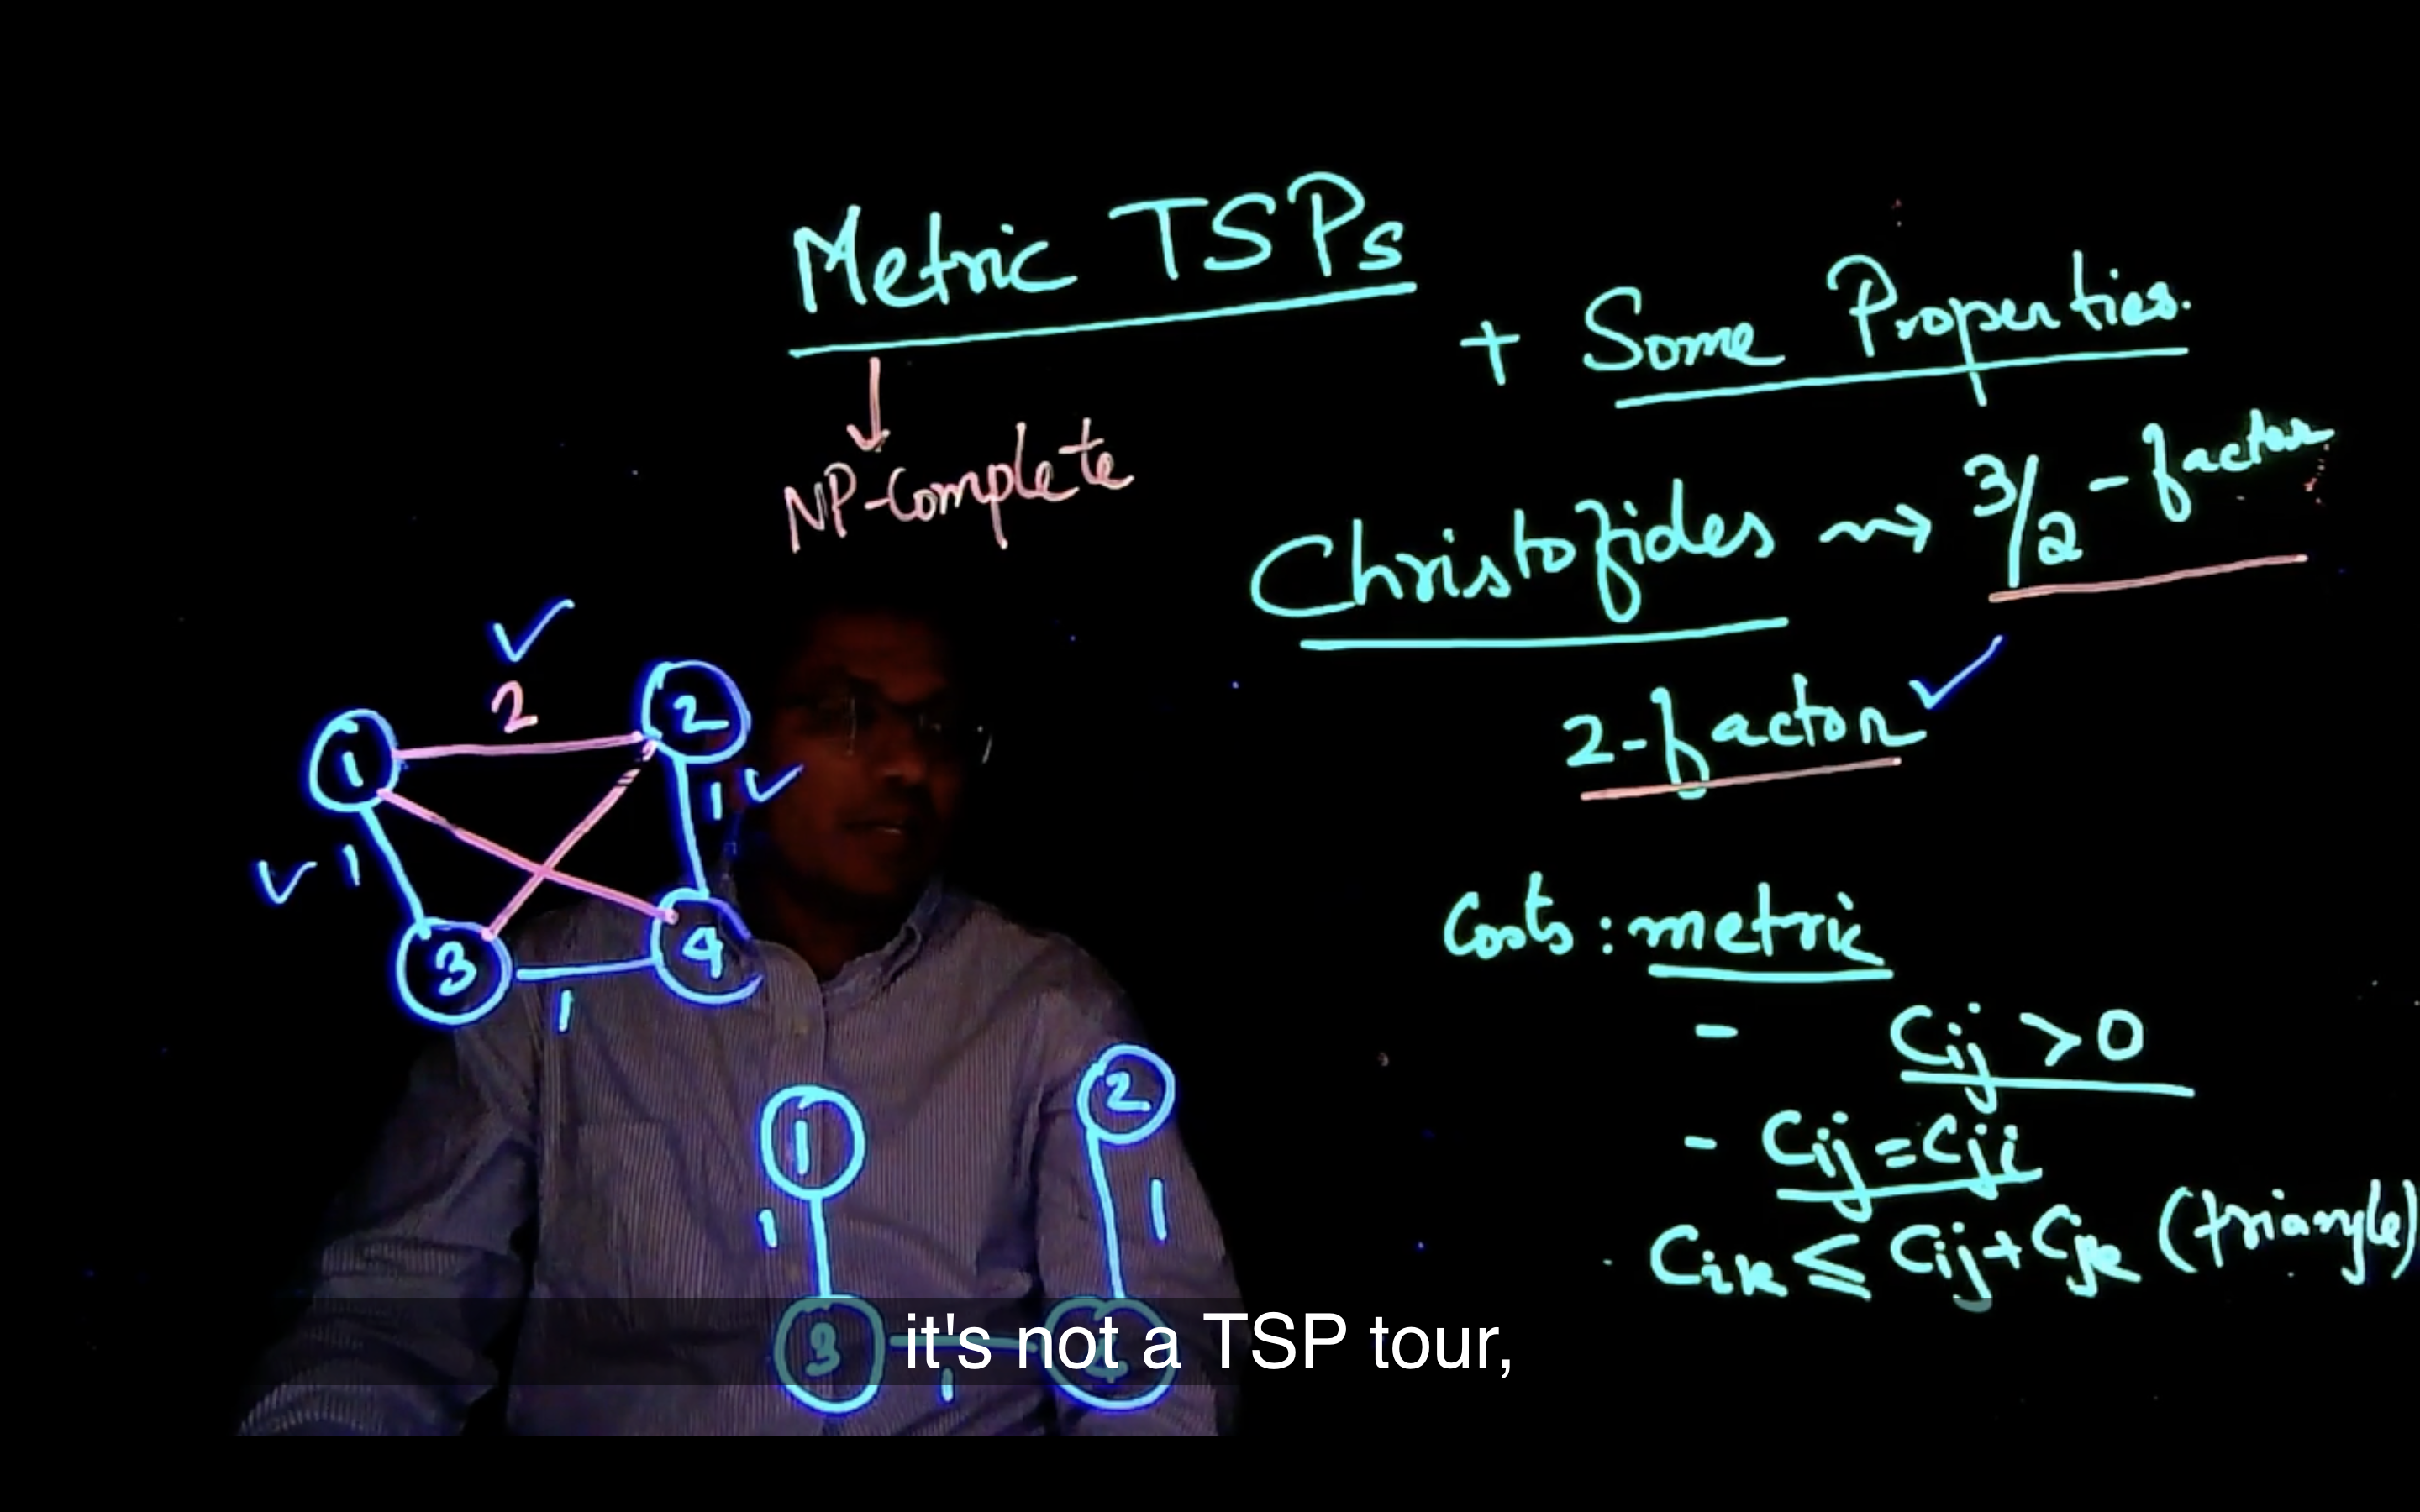 Metric TSPs
+ Some Properties.
NP-Complete
Christofides ⇝ 3/2 - factor
2-factor ✓
✓
2
1
2
1 ✓
✓ 1
3
4
1
Costs : metric
- Cij > 0
- Cij = Cji
. Cik ≤ Cij + Cjk (triangle)
1
2
1
1
3
1
it's not a TSP tour,